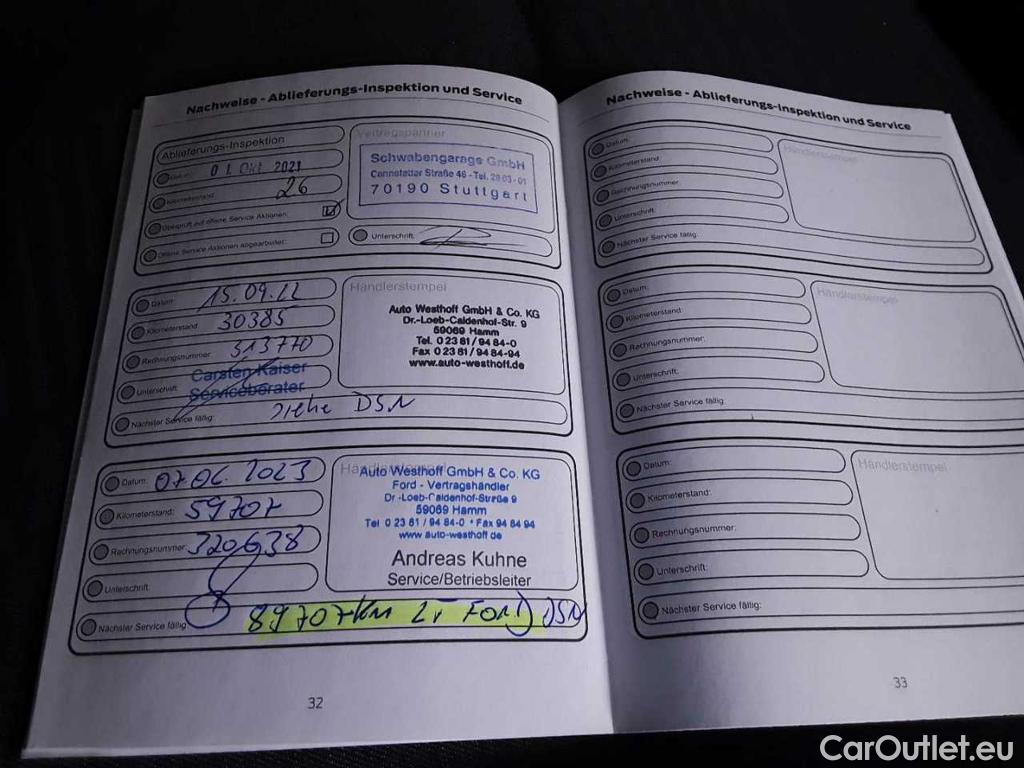 Nachweise - Ablieferungs-Inspektion und Service
Ablieferungs-Inspektion
Datum: 01. Okt. 2021
Kilometerstand: 26
Überprüft auf offene Service Aktionen:
Offene Service Aktionen abgearbeitet:
Vertragspartner
Schwabengarage GmbH
Cannstatter Straße 46 - Tel. 28 03-01
70190 Stuttgart
Unterschrift:
Datum: 15.09.22
Kilometerstand: 30385
Rechnungsnummer: 313770
Unterschrift:
Carsten Kaiser
Serviceberater
Nächster Service fällig: siehe DSN
Händlerstempel
Auto Westhoff GmbH & Co. KG
Dr.-Loeb-Caldenhof-Str. 9
59069 Hamm
Tel. 0 23 81 / 94 84-0
Fax 0 23 81 / 94 84-94
www.auto-westhoff.de
Datum: 07.06.2023
Kilometerstand: 59707
Rechnungsnummer: 320638
Unterschrift:
Nächster Service fällig: 89707KM LT FORD DSN
Händlerstempel
Auto Westhoff GmbH & Co. KG
Ford - Vertragshändler
Dr.-Loeb-Caldenhof-Straße 9
59069 Hamm
Tel 0 23 81 / 94 84-0 * Fax 94 84 94
www auto-westhoff de
Andreas Kuhne
Service/Betriebsleiter
32
Nachweise - Ablieferungs-Inspektion und Service
Datum:
Kilometerstand:
Rechnungsnummer:
Unterschrift:
Nächster Service fällig:
Händlerstempel
Datum:
Kilometerstand:
Rechnungsnummer:
Unterschrift:
Nächster Service fällig:
Händlerstempel
Datum:
Kilometerstand:
Rechnungsnummer:
Unterschrift:
Nächster Service fällig:
Händlerstempel
33
CarOutlet.eu